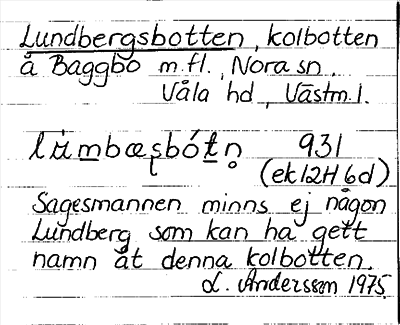 Lundbergsbotten, kolbotten
å Baggbo m.fl., Nora sn.
Våla hd, Västm.l.
lù̀mbæșbót̲n̥ 931
(ek 12H 6d)
Sagesmannen minns ej någon
Lundberg som kan ha gett
namn åt denna kolbotten.
L. Andersson 1975.